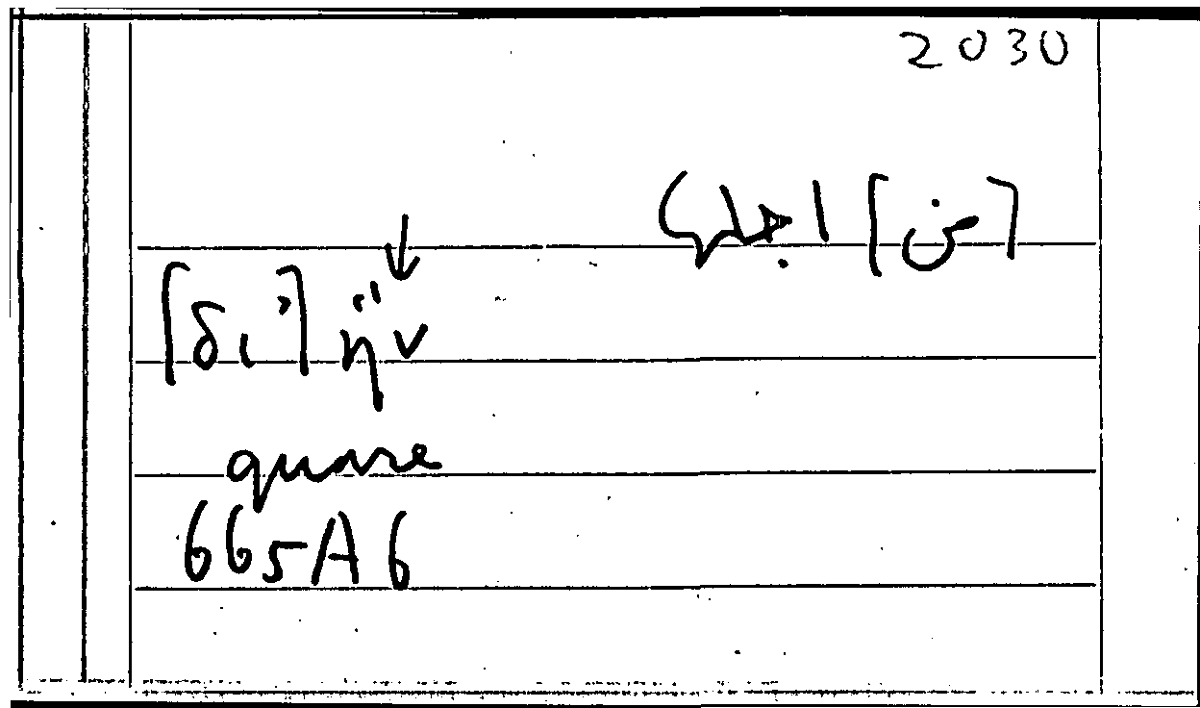 2030
[من] اجلها
↓
[δι’] ἣν
quare
665A6